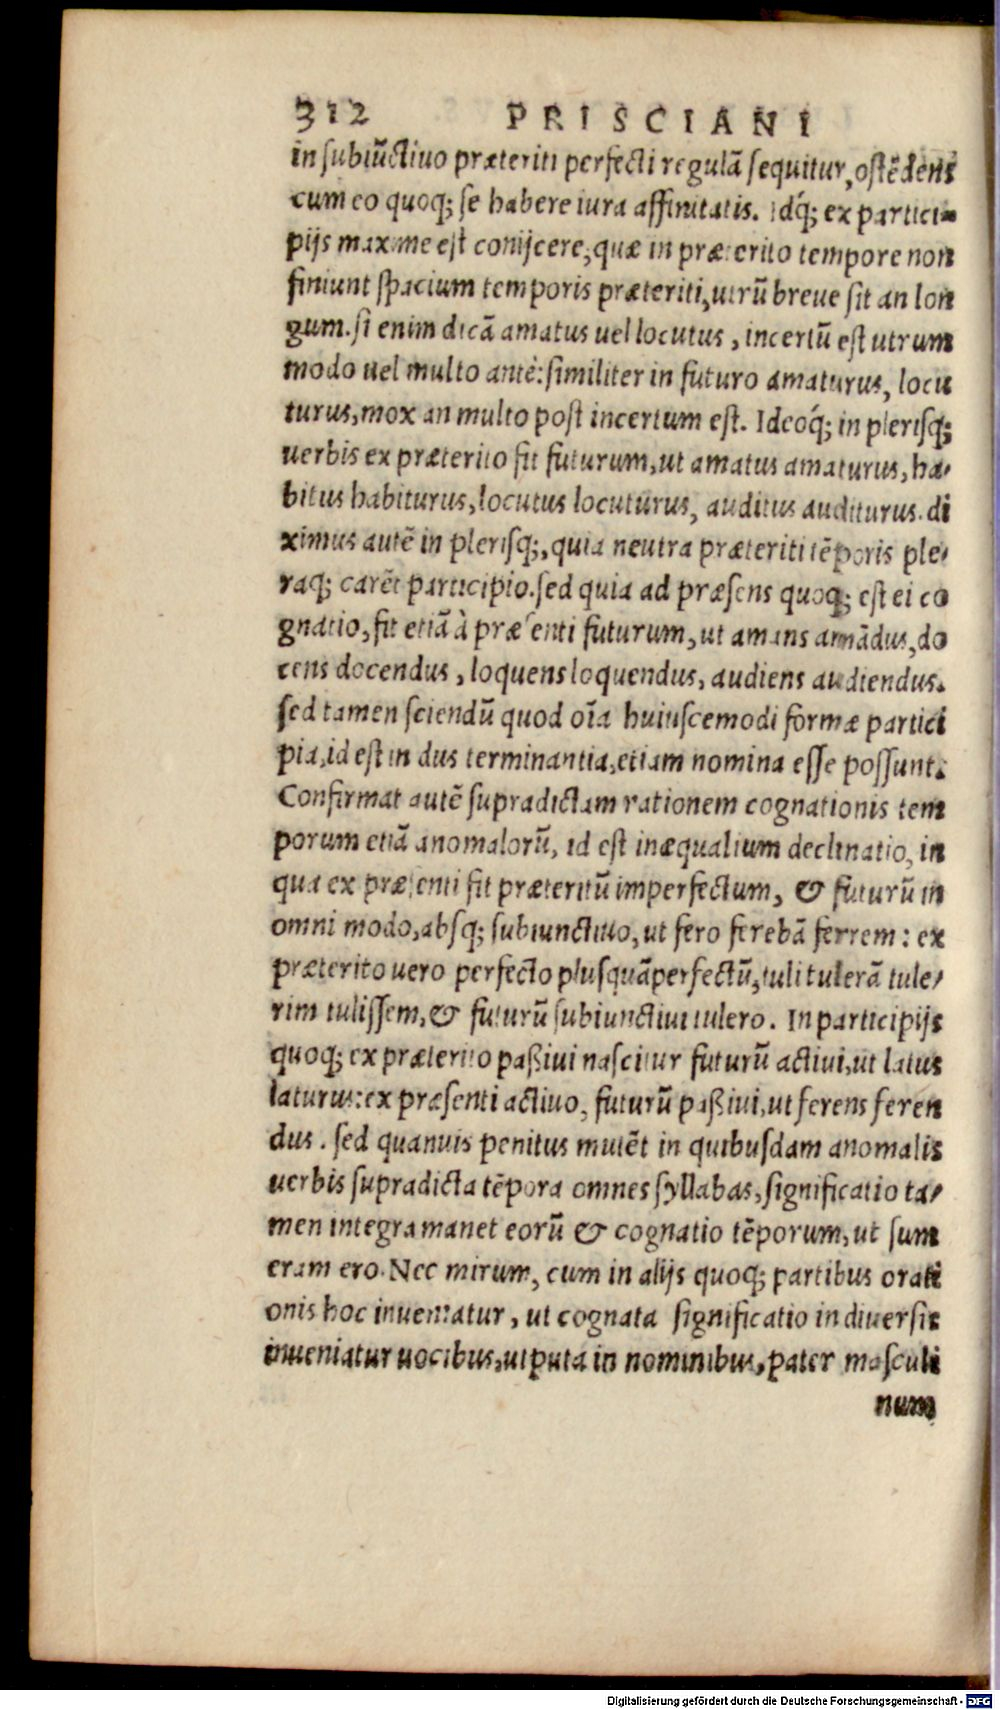 312 PRISCIANI
in subiũctiuo præteriti perfecti regulã sequitur, ostẽdens
cum eo quoq; se habere iura affinitatis. Idq́; ex partici-
pijs maxime est conijcere, quæ in præterito tempore non
finiunt spacium temporis præteriti, utrũ breue sit an lon
gum. si enim dicã amatus uel locutus, incertũ est utrum
modo uel multo antè: similiter in futuro amaturus, locu
turus, mox an multo post incertum est. Ideoq́; in plerisq;
uerbis ex præterito fit futurum, ut amatus amaturus, ha-
bitus habiturus, locutus locuturus, auditus auditurus. di
ximus autẽ in plerisq;, quia neutra præteriti tẽporis ple-
raq; carẽt participio. sed quia ad præsens quoq; est ei co
gnatio, fit etiã à præsenti futurum, ut amans amãdus, do
cens docendus, loquens loquendus, audiens audiendus.
sed tamen sciendũ quod oĩa huiuscemodi formæ partici
pia, id est in dus terminantia, etiam nomina esse possunt.
Confirmat autẽ supradictam rationem cognationis tem
porum etiã anomalorũ, id est inæqualium declinatio, in
qua ex præsenti fit præteritũ imperfectum, & futurũ in
omni modo, absq; subiunctiuo, ut fero ferebã ferrem: ex
præterito uero perfecto plusquãperfectũ, tuli tulerã tule-
rim tulissem, & futurũ subiunctiui tulero. In participijs
quoq; ex præterito paßiui nascitur futurũ actiui, ut latus
laturus: ex præsenti actiuo, futurũ paßiui, ut ferens feren
dus. sed quanuis penitus mutẽt in quibusdam anomalis
uerbis supradicta tẽpora omnes syllabas, significatio ta-
men integra manet eorũ & cognatio tẽporum, ut sum
eram ero. Nec mirum, cum in alijs quoq; partibus orati
onis hoc inueniatur, ut cognata significatio in diuersis
inueniatur uocibus, utputa in nominibus, pater masculi
num
Digitalisierung gefördert durch die Deutsche Forschungsgemeinschaft - DFG